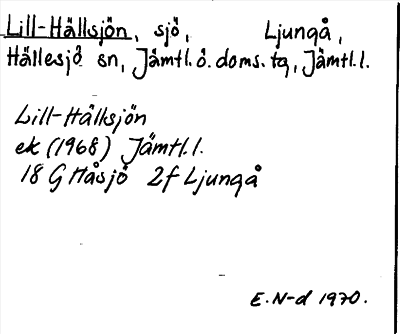 Lill-Hällsjön, sjö, Ljungå,
Hällesjö sn, Jämtl.ö.doms.tg, Jämtl.l.
Lill-Hällsjön
ek (1968) Jämtl.l.
18 G Håsjö 2f Ljungå
E. N-d 1970.